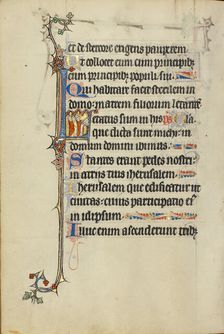 et de stercore erigens pauperem
Ut collocet eum cum principib;
cum principib; populi sui
Qui habitare facit sterilem in
domo: matrem filiorum letantem
Letatus sum in his
que dicta sunt michi: in
domum domini ibimus
Stantes erant pedes nostri
in atriis tuis iherusalem
Iherusalem que edificatur ut
ciuitas: cuius participatio e
in idipsum
Illuc enim ascenderunt trib;